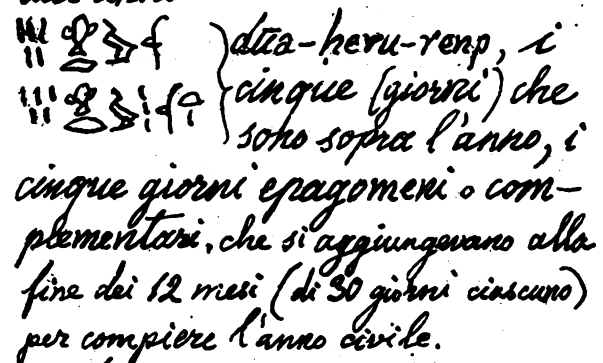 dūa-heru-renp, i
cinque (giorni) che
sono sopra l'anno, i
cinque giorni epagomeni o com-
plementari, che si aggiungevano alla
fine dei 12 mesi (di 30 giorni ciascuno)
per compiere l'anno civile.